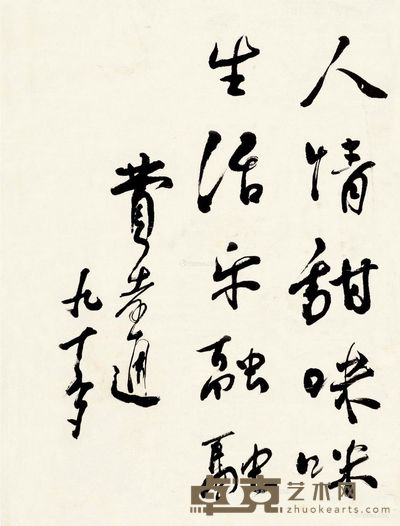 人情甜咪咪
生活乐融融
費孝通
九十岁
卓克艺术网
zhuokearts.com